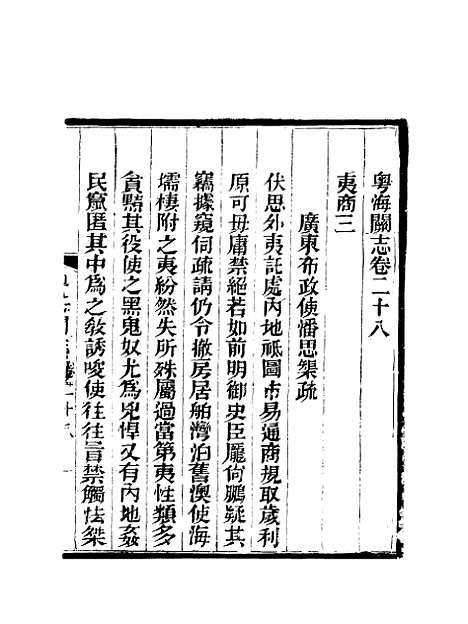 粵海關志卷二十八
夷商三
廣東布政使潘思榘疏
伏思外夷託處內地祗圖市易通商規取歲利
原可毋庸禁絕若如前明御史臣龐尚鵬疑其
竊據窺伺疏請仍令撤房居舶灣泊舊澳使海
壖棲附之夷紛然失所殊屬過當第夷性類多
貪黠其役使之黑鬼奴尤為兇悍又有內地姦
民竄匿其中為之敎誘唆使往往冒禁觸法桀